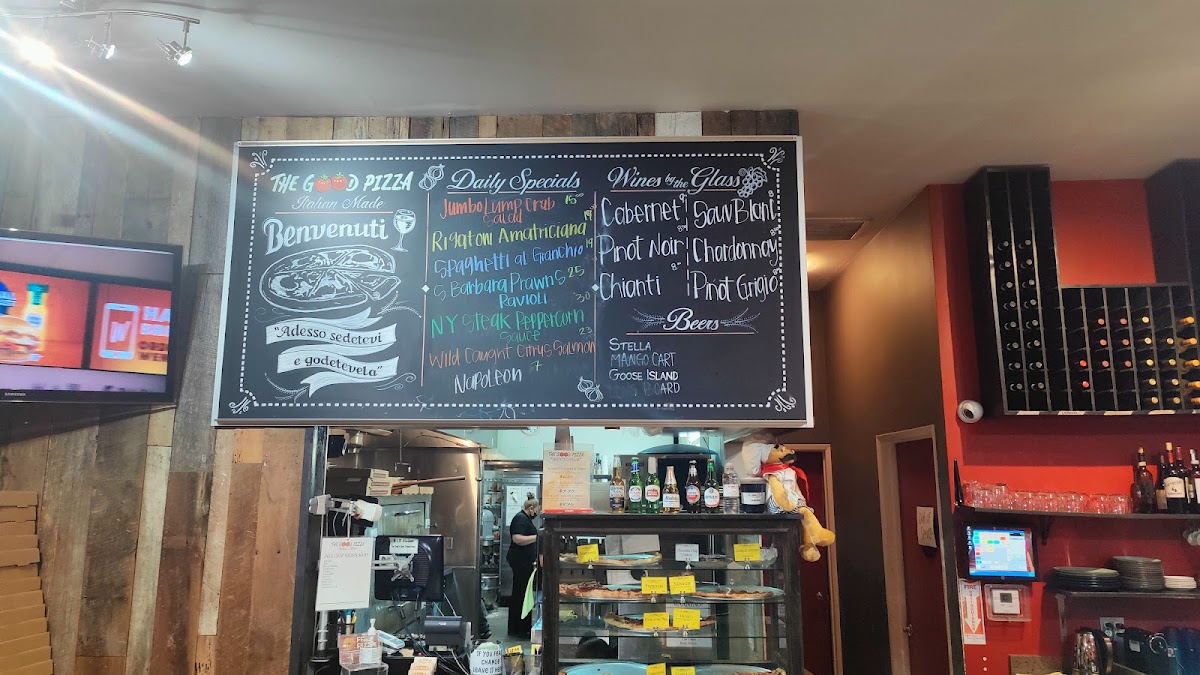 THE GOOD PIZZA
Italian Made
Benvenuti
"Adesso sedetevi
e godetevela"
Daily Specials
Jumbo Lump Crab 15
Salad
Rigatoni Amatriciana 19
Spaghetti al Granchio 19
S Barbara Prawns 25
Ravioli
NY Steak Peppercorn 30
Sauce
Wild Caught Citrus Salmon 23
Napoleon 7
Wines by the Glass
Cabernet 9
Pinot Noir 8
Chianti 8
Sauv Blanc 8
Chardonnay 8
Pinot Grigio 8
Beers
STELLA
MANGO CART
GOOSE ISLAND
THE GOOD PIZZA
THE GOOD PIZZA
IF YOU FEAR
CHANGE
LEAVE IT HERE